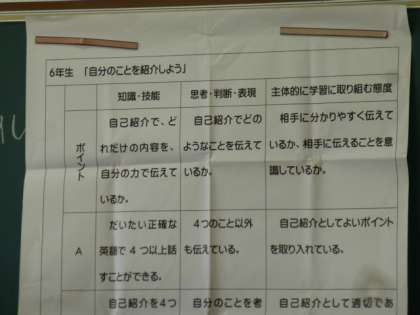 6年生 「自分のことを紹介しよう」
知識・技能
思考・判断・表現
主体的に学習に取り組む態度
ポイント
自己紹介で、ど
れだけの内容を、
自分の力で伝えて
いるか。
自己紹介でどの
ようなことを伝えて
いるか。
相手に分かりやすく伝えて
いるか、相手に伝えることを意
識しているか。
A
だいたい正確な
英語で 4 つ以上話
すことができる。
4つのこと以外
も伝えている。
自己紹介としてよいポイント
を取り入れている。
自己紹介を4つ
自分のことを者
自己紹介として適切であ